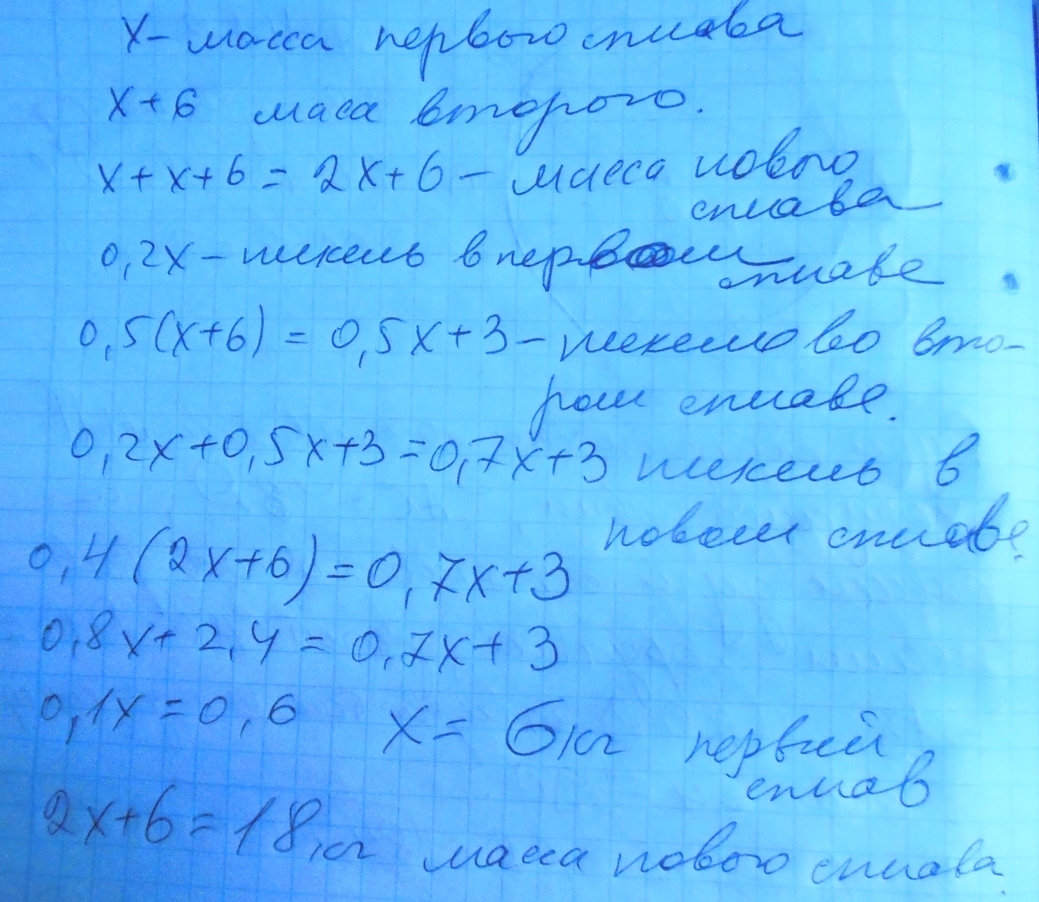 x – масса первого сплава
x+6 маса второго.
x+x+6 = 2x+6 – масса нового
сплава
0,2x – никель в первом
сплаве
0,5(x+6) = 0,5x+3 – никель во вто-
ром сплаве.
0,2x+0,5x+3=0,7x+3 никель в
новом сплаве.
0,4(2x+6)=0,7x+3
0,8x+2,4=0,7x+3
0,1x=0,6 x= 6кг первый
сплав
2x+6=18кг масса нового сплава.